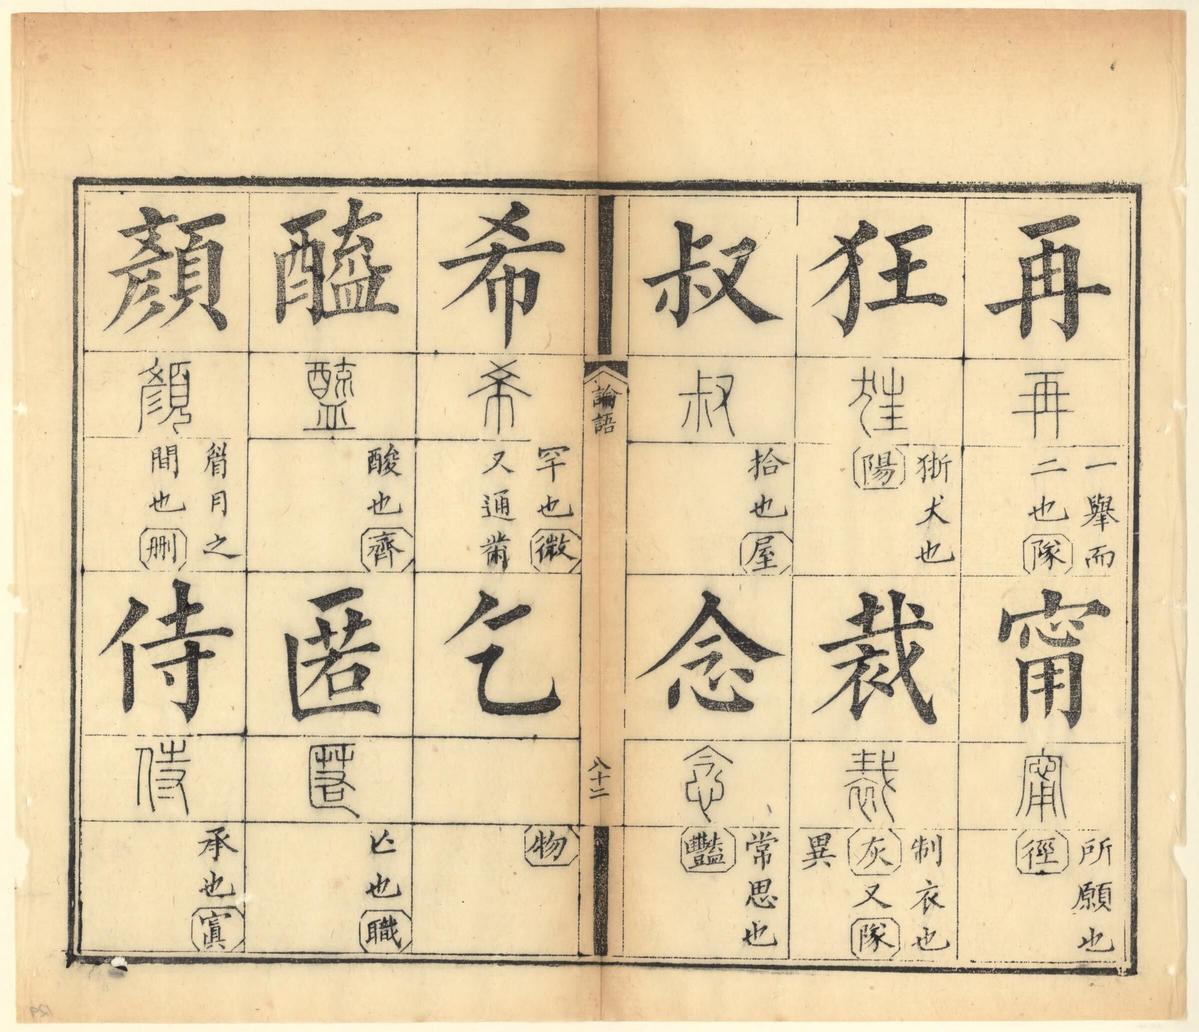 再
再
一舉而
二也隊
甯
甯
所願也
徑
狂
狂
狾犬也
陽
裁
裁
制衣也
灰又隊
異
叔
叔
拾也屋
念
念
常思也
豔
論語
八十二
希
希
罕也微
又通黹
乞
物
醯
醯
酸也齊
匿
匿
亡也職
顏
顏
眉目之
間也刪
侍
侍
承也寘